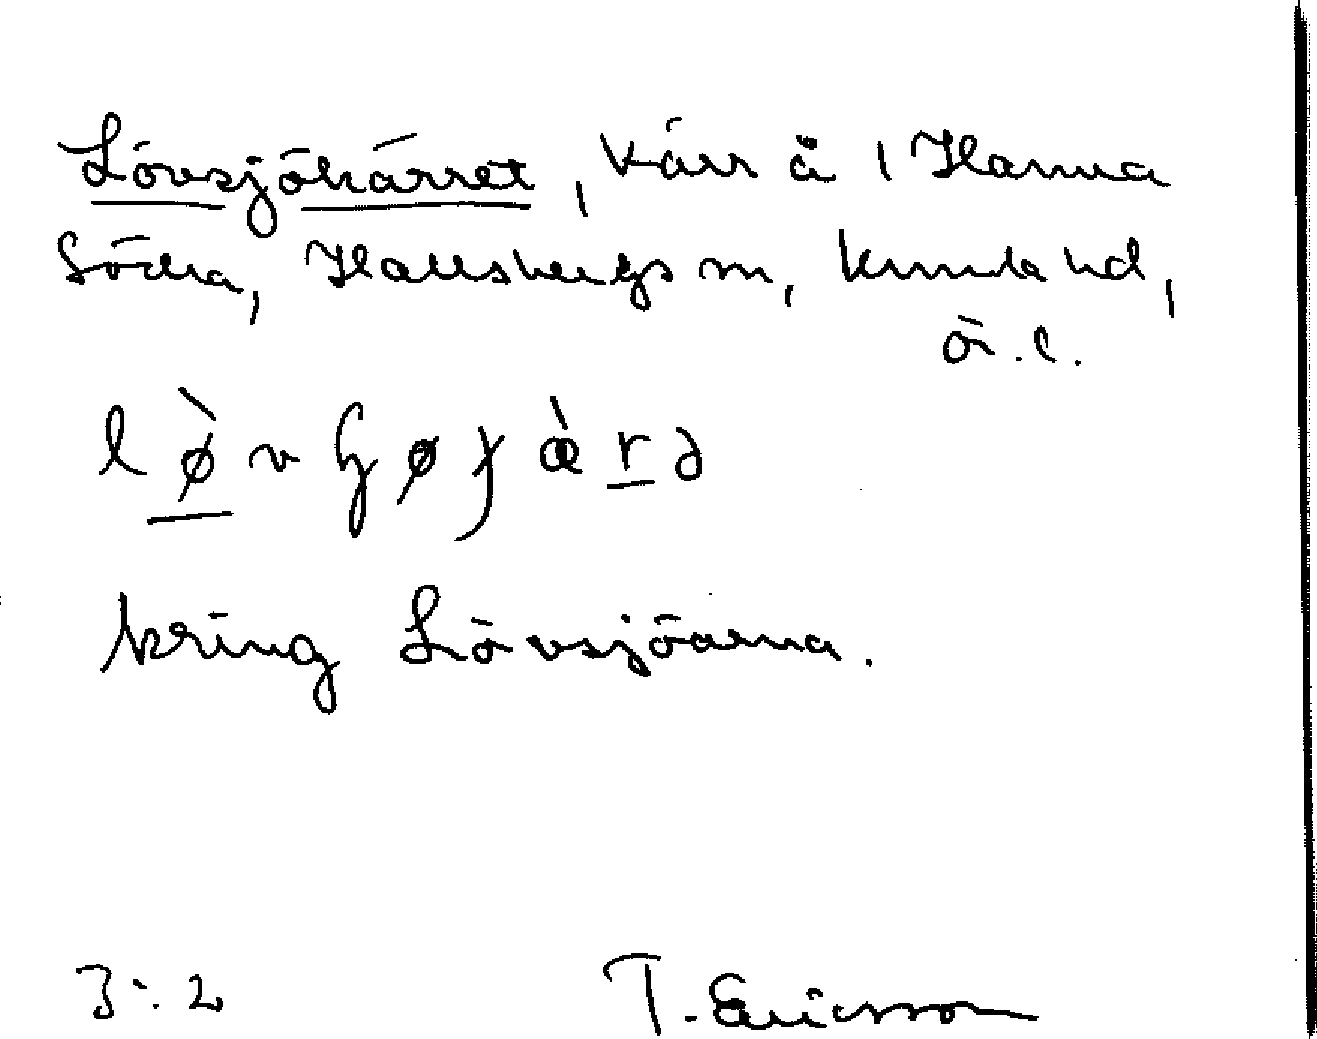 Lövsjökärret, kärr å 1 Hanna
Södra, Hallsbergs sn, Kumla hd,
ör. l.
lø̀vɧøȷæ̀rə
kring Lövsjöarna.
3:2
T. Ericsson